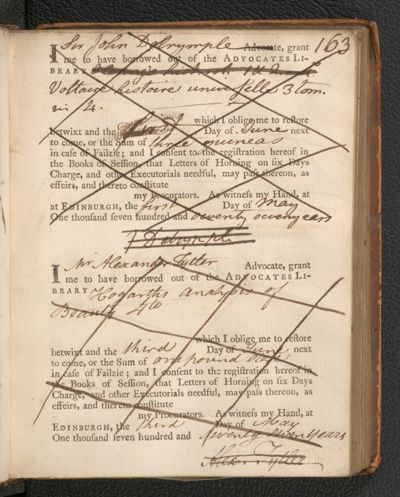 163
I Sir John Dalrymple Advocate, grant
me to have borrowed out of the ADVOCATES LI-
BRARY
Voltair histoire universelle 3 tom.
in 4.
which I oblige me to restore
betwixt and the first Day of June next
to come, or the Sum of three guineas
in case of Failzie; and I consent to the registration hereof in
the Books of Session, that Letters of Horning on six Days
Charge, and other Executorials needful, may pass thereon, as
effeirs, and thereto constitute
my Procurators. As witness my Hand, at
at EDINBURGH, the first Day of May
One thousand seven hundred and seventy seven years
J Dalrymple
I Mr Alexander Tytler Advocate, grant
me to have borrowed out of the ADVOCATES LI-
BRARY Hogarths analysis of
Beauty 4to
which I oblige me to restore
betwixt and the third Day of June next
to come, or the Sum of one pound
in case of Failzie; and I consent to the registration hereof in
the Books of Session, that Letters of Horning on six Days
Charge, and other Executorials needful, may pass thereon, as
effeirs, and thereto constitute
my Procurators. As witness my Hand, at
EDINBURGH, the third Day of May
One thousand seven hundred and seventy seven years
Alexr Tytler